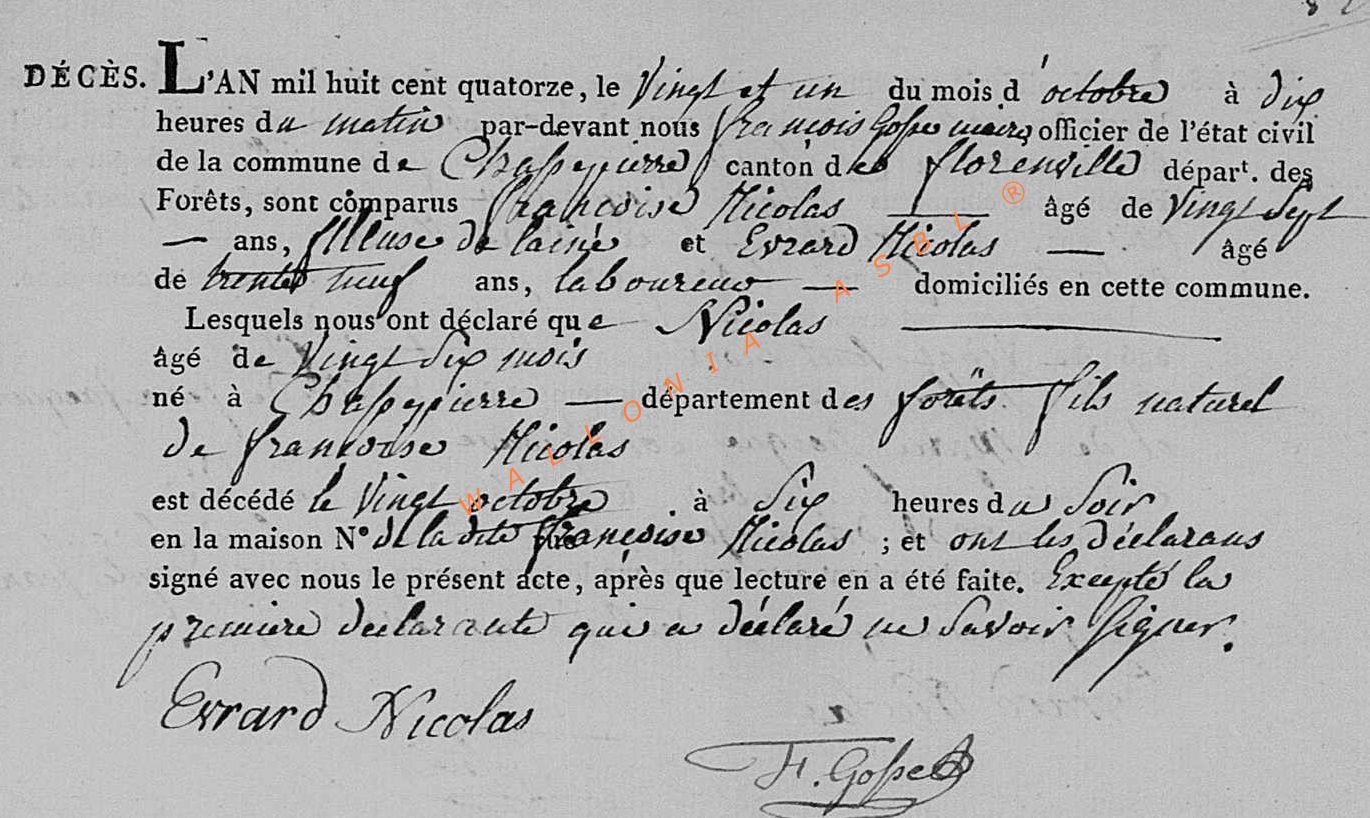 DÉCÈS. L'AN mil huit cent quatorze, le Vingt et un du mois d'octobre à dix
heures du matin par-devant nous françois Gosse maire officier de l'état civil
de la commune de Chassepierre canton de florenville départ. des
Forêts, sont comparus françoise Nicolas âgé de Vingt Sept
— ans, filleuse de laine et Evrard Nicolas — âgé
de trente neuf ans, laboureur — domiciliés en cette commune.
Lesquels nous ont déclaré que Nicolas —
âgé de Vingt Six mois
né à Chassepierre — département des forêts fils naturel
de françoise Nicolas
est décédé le Vingt octobre à Six heures du Soir
en la maison N° de la dite françoise Nicolas ; et ont les déclarans
signé avec nous le présent acte, après que lecture en a été faite. Excepté la
premiere declarante qui a déclaré ne Savoir Signer.
Evrard Nicolas
F. Gosse
WALLONIA ASBL ®